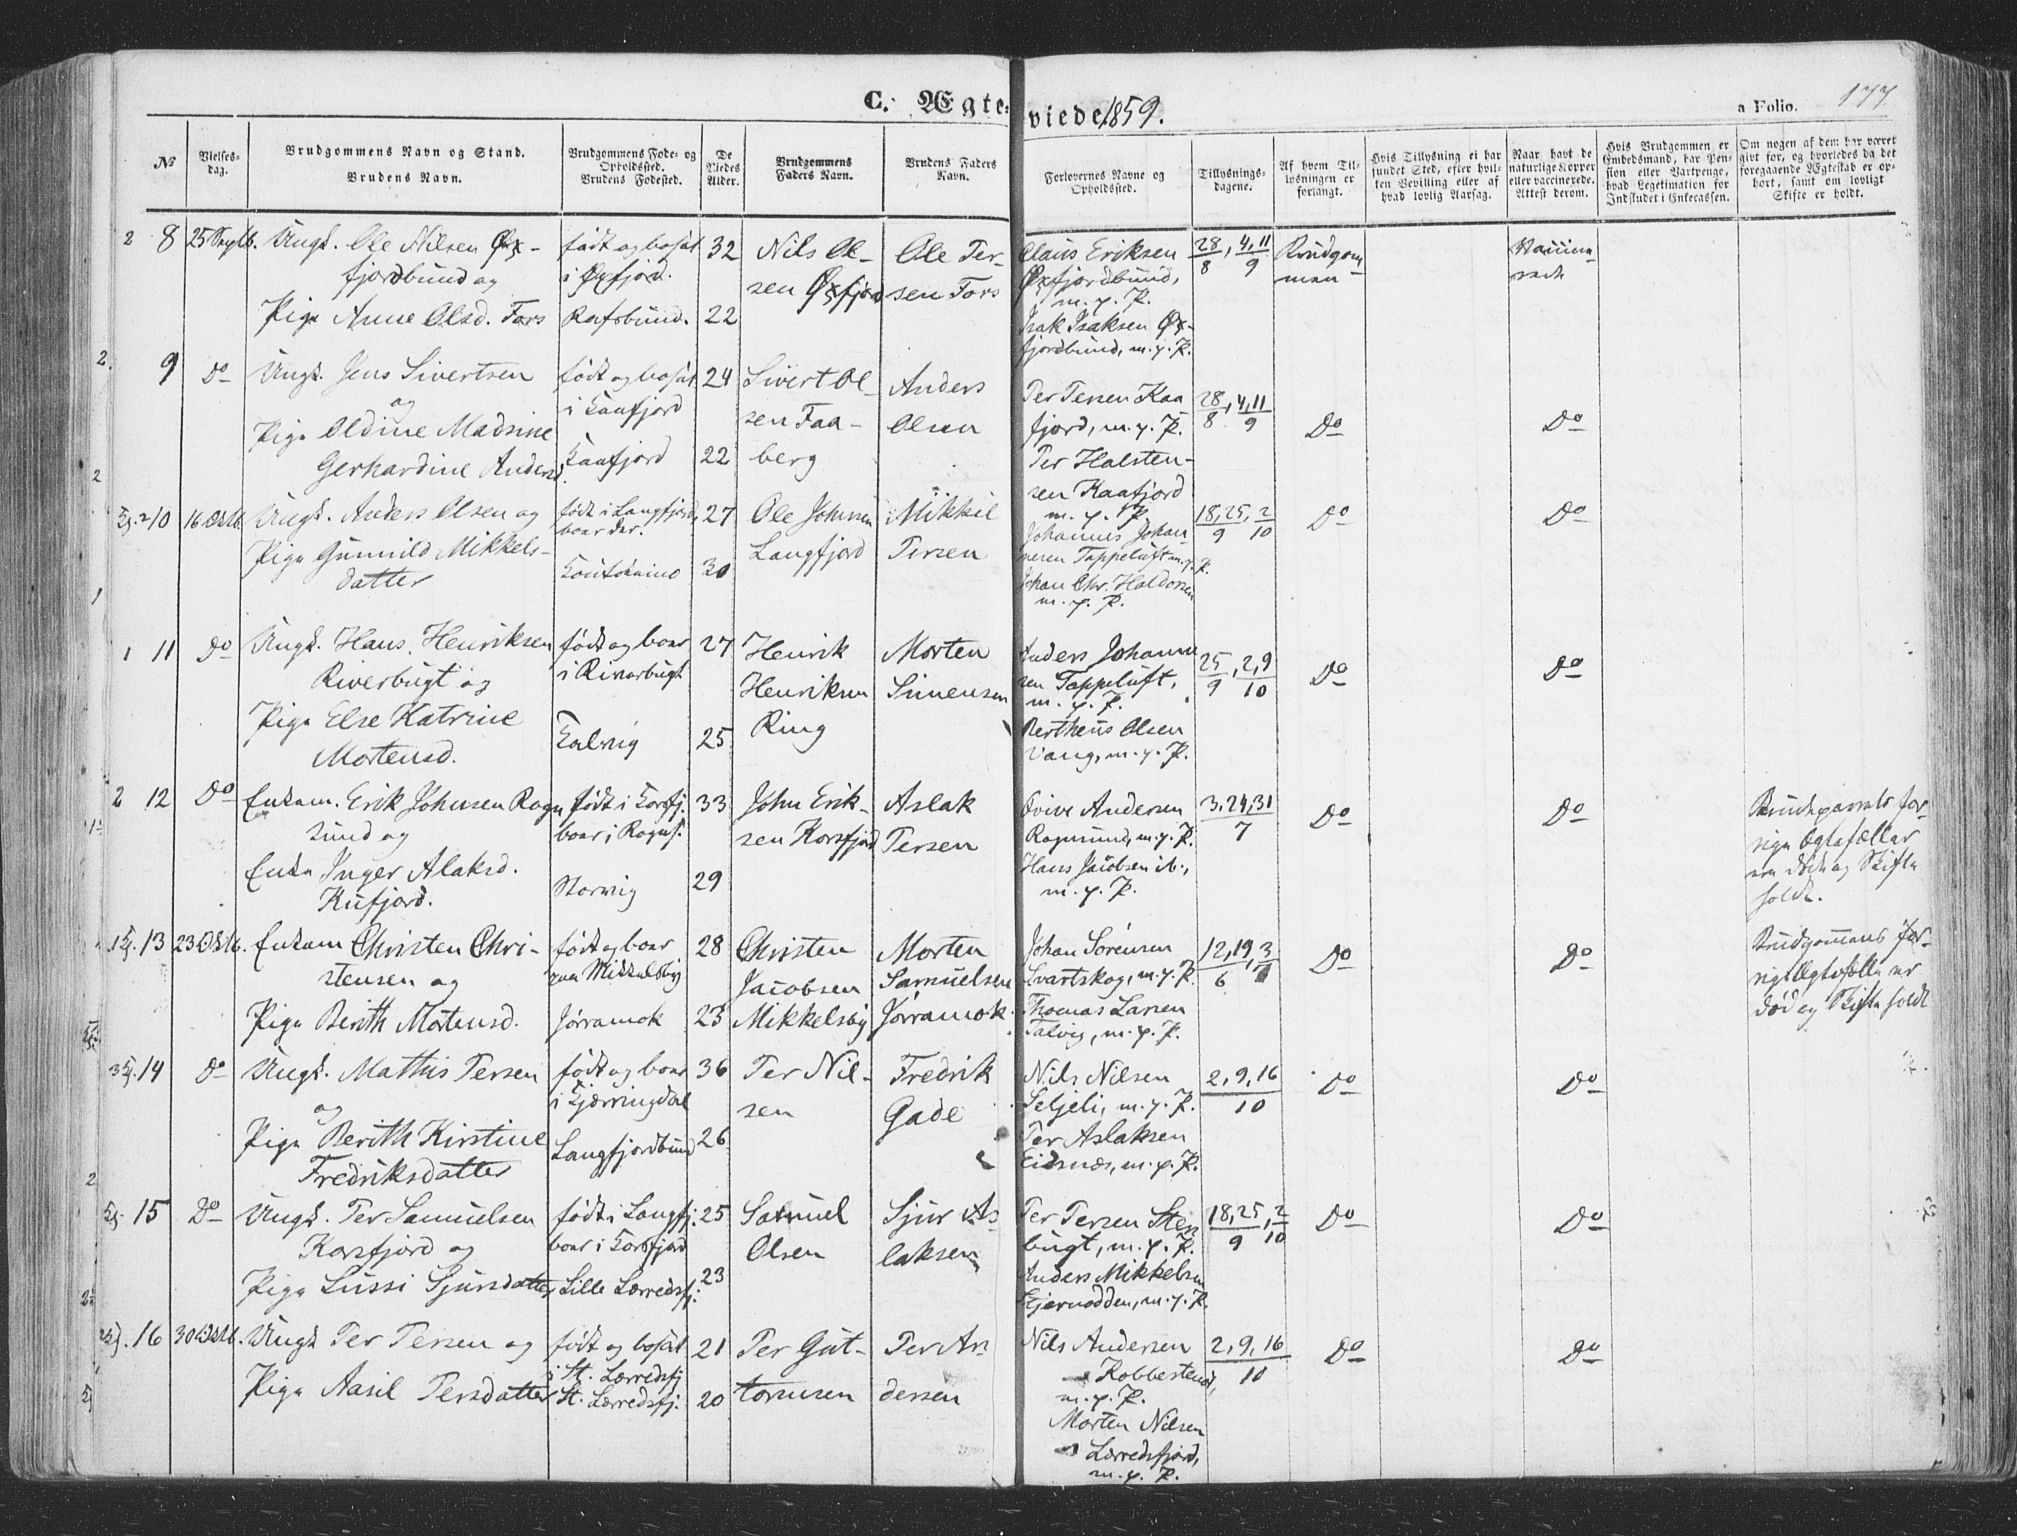 C. Ægteviede 1859.
a Folio. 177.
№
Vielses-
dag.
Brudgommens Navn og Stand.
Brudens Navn.
Brudgommens Føde- og
Opholdssted.
Brudens Fødested.
De
Viedes
Alder.
Brudgommens
Faders Navn.
Brudens Faders
Navn.
Forlovernes Navne og
Opholdssted.
Tillysnings-
dagene.
Af hvem Til-
lysningen er
forlangt.
Hvis Tillysning ei har
fundet Sted, efter hvil-
ken Bevilling eller af
hvad lovlig Aarsag.
Naar havt de
naturlige Kopper
eller vaccinerede.
Attest derom.
Hvis Brudgommen er
Embedsmand, har Pen-
sion eller Vartpenge,
hvad Legetimation for
Indskudet i Enkecassen.
Om nogen af dem har været
givt for, og hvorledes da det
foregaaende Ægteskab er op-
hørt, samt om lovligt
Skifte er holdt.
2 8 25 Septb. Ungk. Ole Nilsen Øx-
fjordbund og
Pige Anne Olsd. Fors
født og bosat
i Øxfjord.
Rafsbund.
32
22
Nils Ol-
sen Øxfjord
Ole Per-
sen Fors
Claus Eriksen
Øxfjordbund,
m. p. P.
Isak Isaksen Øx-
fjordbund, m. p. P.
28/8, 4, 11/9
Brudgom-
men
Vaccine-
rede
2 9 Do Ungk. Jens Sivertsen
og
Pige Oldine Madsine
Gerhardine Andersd.
født og bosat
i Kaafjord
Kaafjord
24
22
Sivert Ol-
sen Faa-
berg
Anders
Olsen
Per Persen Kaa-
fjord, m. p. P.
Per Halsten-
sen Kaafjord
m. p. P.
28/8, 4, 11/9
Do
Do
10 16 Oktb. Ungk. Anders Olsen og
Pige Gunnild Mikkels-
datter
født i Langfjord,
boer der.
Koutokeino
27
30
Ole Johnsen
Langfjord
Mikkel
Persen
Johannes Johan-
nesen Tappeluft m. p. P.
Johan Chr. Haldorsen
m. p. P.
18, 25/9, 2/10
Do
Do
1 11 Do Ungk. Hans Henriksen
Riverbugt og
Pige Else Katrine
Mortensd.
født og boer
i Riverbugt
Talvig
27
25
Henrik
Henriksen
Ring
Morten
Simensen
Anders Johanne-
sen Tappeluft,
m. p. P.
Bertheus Olsen
Vang, m. p. P.
25/9, 2, 9/10
Do
Do
2 12 Do Enkem. Erik Johnsen Rogn-
sund og
Enke Inger Alaksd.
Kufjord.
født i Korsfj.
boer i Rogns.
Storvig
33
29
John Erik-
sen Korsfjord
Aslak
Persen
Ovive Andersen
Rognsund, m. p. P.
Hans Jacobsen ib.,
m. p. P.
3, 24, 31/7
Do
Do
Brudeparrets for-
rige Ægtefæller
ere døde og Skifte
holdt.
13 23 Oktb. Enkem Christen Chri-
stensen og
Pige Berith Mortensd.
født og boer
paa Mikkelsby
Jørramok
28
23
Christen
Jacobsen
Mikkelsby
Morten
Samuelsen
Jørramok.
Johan Sørensen
Svartskog, m. p. P.
Thomas Larsen
Talvig, m. p. P.
12, 19/6, 3/7
Do
Do
Brudgommens for-
rige Ægtefælle er
død og Skifte holdt
14 Do Ungk. Mathis Persen
og
Pige Berith Kirstine
Fredriksdatter
født og boer
i Kjærringdal
Langfjordbund
36
26
Per Nil-
sen
Fredrik
Gade
Nils Nilsen
Seljeli, m. p. P.
Per Aslaksen
Eidsnæs, m. p. P.
2, 9, 16/10
Do
Do
15 Do Ungk. Per Samuelsen
Korsfjord og
Pige Sussi Sjursdatter
født i Langfj.
boer i Korsfjord
Lille Lærredsfj.
25
23
Samuel
Olsen
Sjur As-
laksen
Per Persen Sten-
bugt, m. p. P.
Anders Mikkelsen
m. p. P.
18, 25/9, 2/10
Do
Do
16 30 Oktb. Ungk Per Persen og
Pige Aasil Persdatter
født og bosat
i St. Lærredsfj
St. Lærredsfj.
21
20
Per Gut-
tormsen
Per An-
dersen
Nils Andersen
m. p. P.
Morten Nilsen
Lærredsfjord,
m. p. P.
2, 9, 16/10
Do
Do